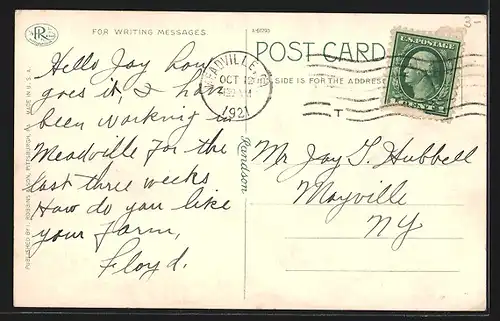 FOR WRITING MESSAGES.
Hello Jay how
goes it, I han
been working in
Meadville for the
last three weeks
How do you like
your Farm,
Floyd.
PUBLISHED BY I. ROBBINS & SON, PITTSBURGH, PA. MADE IN U. S. A.
R
POST CARD
SIDE IS FOR THE ADDRESS
MEADVILLE
OCT 12
1921
T
U.S. POSTAGE
1 CENT 1
Randson
Mr Jay T. Hubbell
Mayville
NY